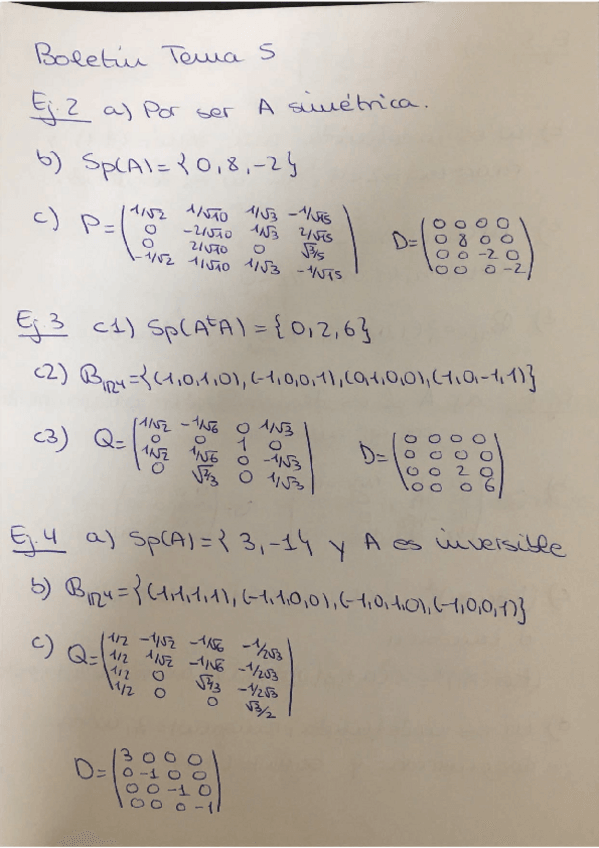 Boletín Tema 5
Ej.2 a) Por ser A simétrica.
b) Sp(A) = {0, 8, -2}
c) P = (1/√2 1/√10 1/√3 -1/√15
0 -2/√10 1/√3 2/√15
0 2/√10 0 √3/5
-1/√2 1/√10 1/√3 -1/√15)
D = (0 0 0 0
0 8 0 0
0 0 -2 0
0 0 0 -2)
Ej.3 c1) Sp(AᵗA) = {0, 2, 6}
c2) B_ℝ⁴ = {(1,0,1,0), (-1,0,0,1), (0,1,0,0), (1,0,-1,1)}
c3) Q = (1/√2 -1/√6 0 1/√3
0 0 1 0
1/√2 1/√6 0 -1/√3
0 √2/3 0 1/√3)
D = (0 0 0 0
0 0 0 0
0 0 2 0
0 0 0 6)
Ej.4 a) Sp(A) = {3, -1} y A es inversible
b) B_ℝ⁴ = {(1,1,1,1), (-1,1,0,0), (-1,0,1,0), (-1,0,0,1)}
c) Q = (1/2 -1/√2 -1/√6 -1/2√3
1/2 1/√2 -1/√6 -1/2√3
1/2 0 √2/3 -1/2√3
1/2 0 0 √3/2)
D = (3 0 0 0
0 -1 0 0
0 0 -1 0
0 0 0 -1)